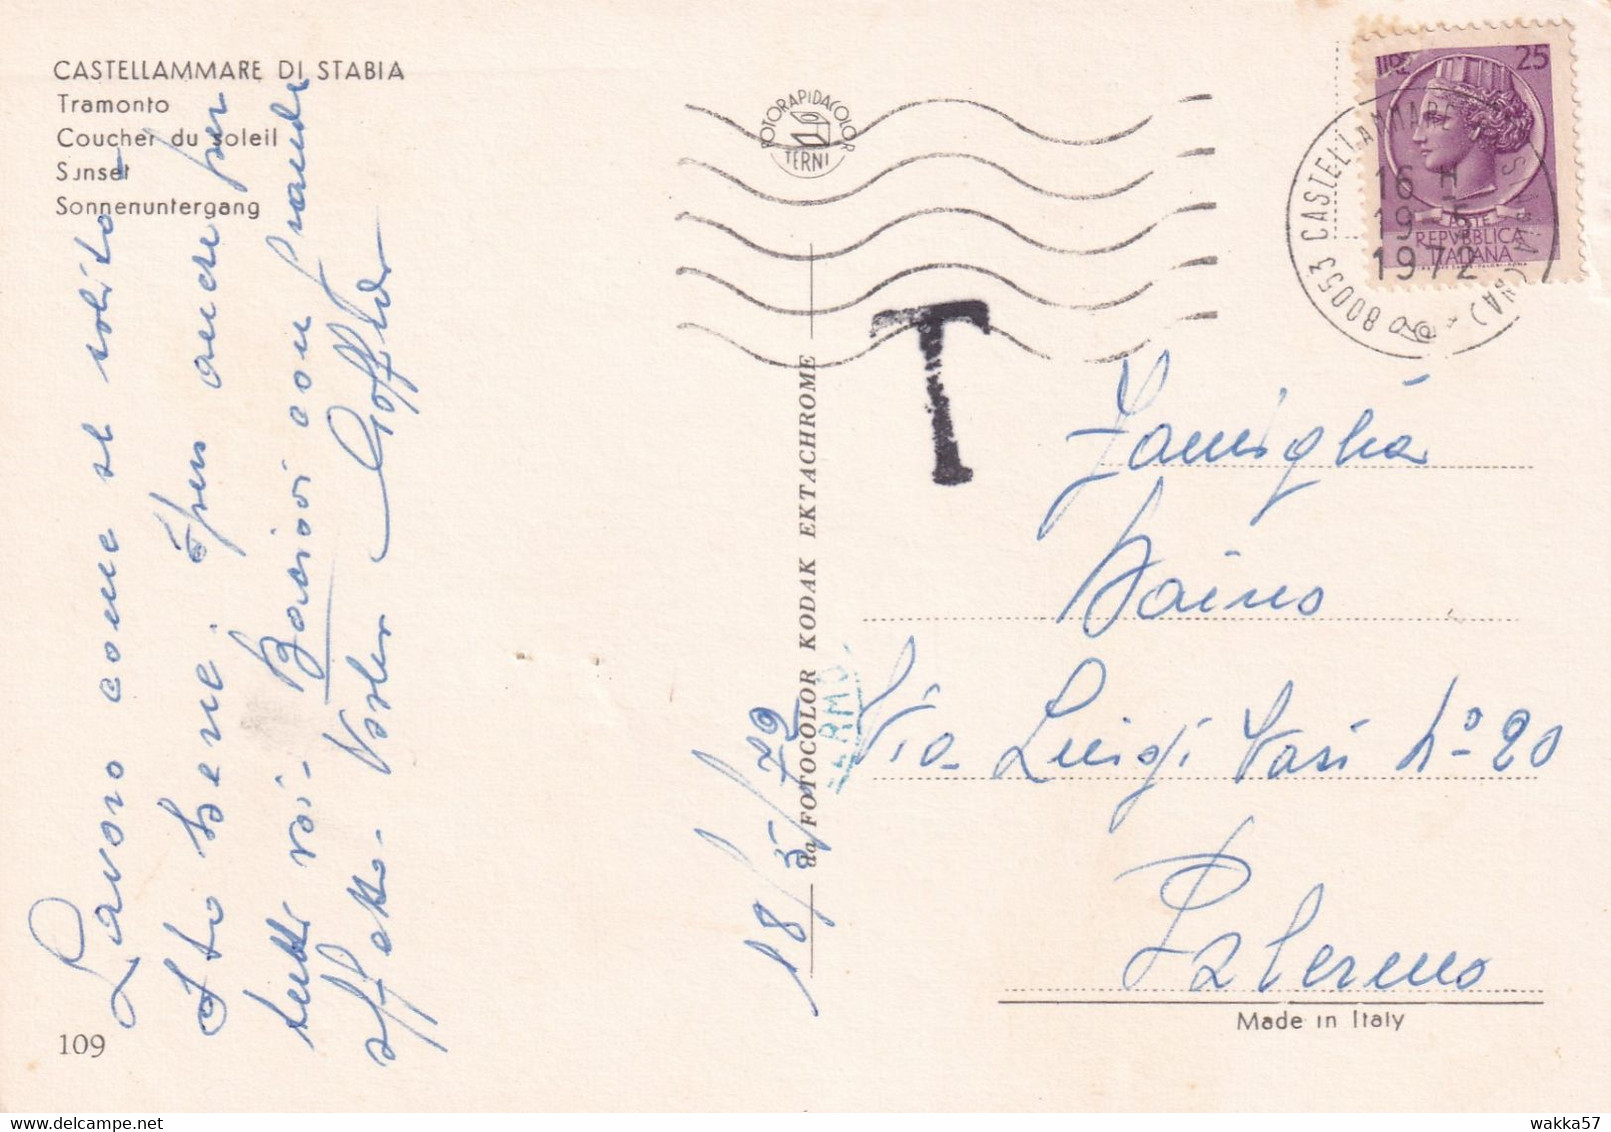 CASTELLAMMARE DI STABIA
Tramonto
Coucher du soleil
Sunset
Sonnenuntergang
Lavoro come al solito -
Sto bene. Spero anche per
tutti voi - Bacioni con grande
affetto - Goffredo
109
ROTORAPIDACOLOR
TERNI
da FOTOCOLOR KODAK EKTACHROME
18/5/72
T
25
REPVBBLICA
ITALIANA
80053 CASTELLAMMARE DI STABIA (NA)
16 H
19-5
1972
Famiglia
Via Luigi Vasi N° 20
Palermo
Made in Italy
wakka57